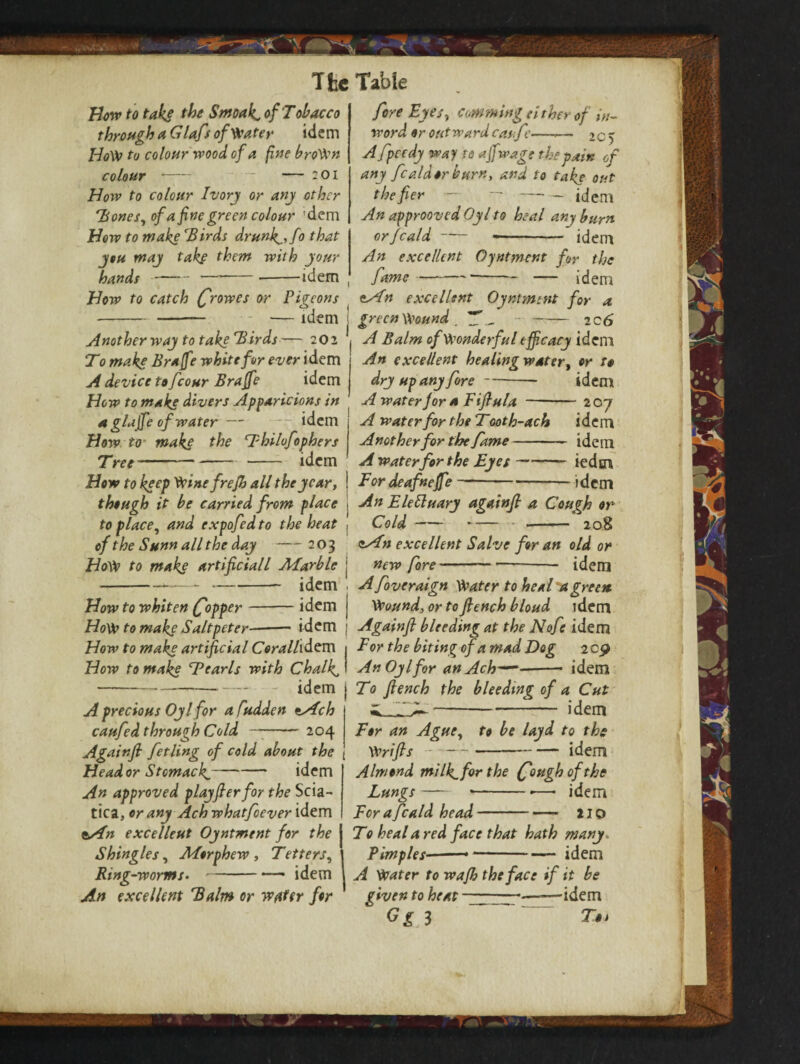 The Table
How to take the Smoak of Tobacco
through a Glass of water idem
How to colour wood of a fine brown
colour —— — 201
How to colour Ivory or any other
Bones, of a fine green colour dem
How to make Birds drunk, so that
you may take them with your
hands —— —— ——idem
How to catch Crowes or Pigeons
—— —— — idem
Another way to take Birds — 202
To make Brasse white for ever idem
A device to scour Brasse idem
How to make divers Apparicions in
a glasse of water — idem
How to make the Philosophers
Tree —— —— —— idem
How to keep Wine fresh all the year,
though it be carried from place
to place, and exposed to the heat
of the Sunn all the day —— 203
How to make artificiall Marble
—— —— —— idem
How to whiten Copper —— idem
How to make Saltpeter —— idem
How to make artificial Corall idem
How to make Pearls with Chalk
—— —— —— idem
A precious Oyl for a sudden Ach
caused through Cold —— 204
Against setling of cold about the
Head or Stomack —— idem
An approved playster for the Scia-
tica, or any Ach whatsoever idem
An excelleut Oyntment for the
Shingles, Morphew, Tetters,
Ring-worms. —— — idem
An excellent Balm or water for
sore Eyes, comming either of in-
word or outward cause —— 205
A speedy way to asswage the pain of
any scald or burn, and to take out
the fier — — —— idem
An approoved Oyl to heal any burn
or scald —— —— idem
An excellent Oyntment for the
same —— —— —— idem
An excellent Oyntment for a
green Wound. —— 206
A Balm of Wonderful efficacy idem
An excellent healing water, or to
dry up any sore —— idem
A water for a Fistula —— 207
A water for the Tooth-ach idem
Another for the same —— idem
A water for the Eyes —— iedm
For deafnesse —— —— idem
An Electuary against a Cough or
Cold —— — —— 208
An excellent Salve for an old or
new sore —— —— idem
A soveraign Water to heal a green
Wound, or to stench bloud idem
Against bleeding at the Nose idem
For the biting of a mad Dog 209
An Oyl for an Ach —— idem
To stench the bleeding of a Cut
—— —— idem
For an Ague, to be layd to the
Wrists —— —— idem
Almond milk for the Cough of the
Lungs —— —— — idem
For a scald head —— — 210
To heal a red face that hath many
Pimples —— —— idem
A Water to wash the face if it be
given to heat —— ——idem
Gg 3 To